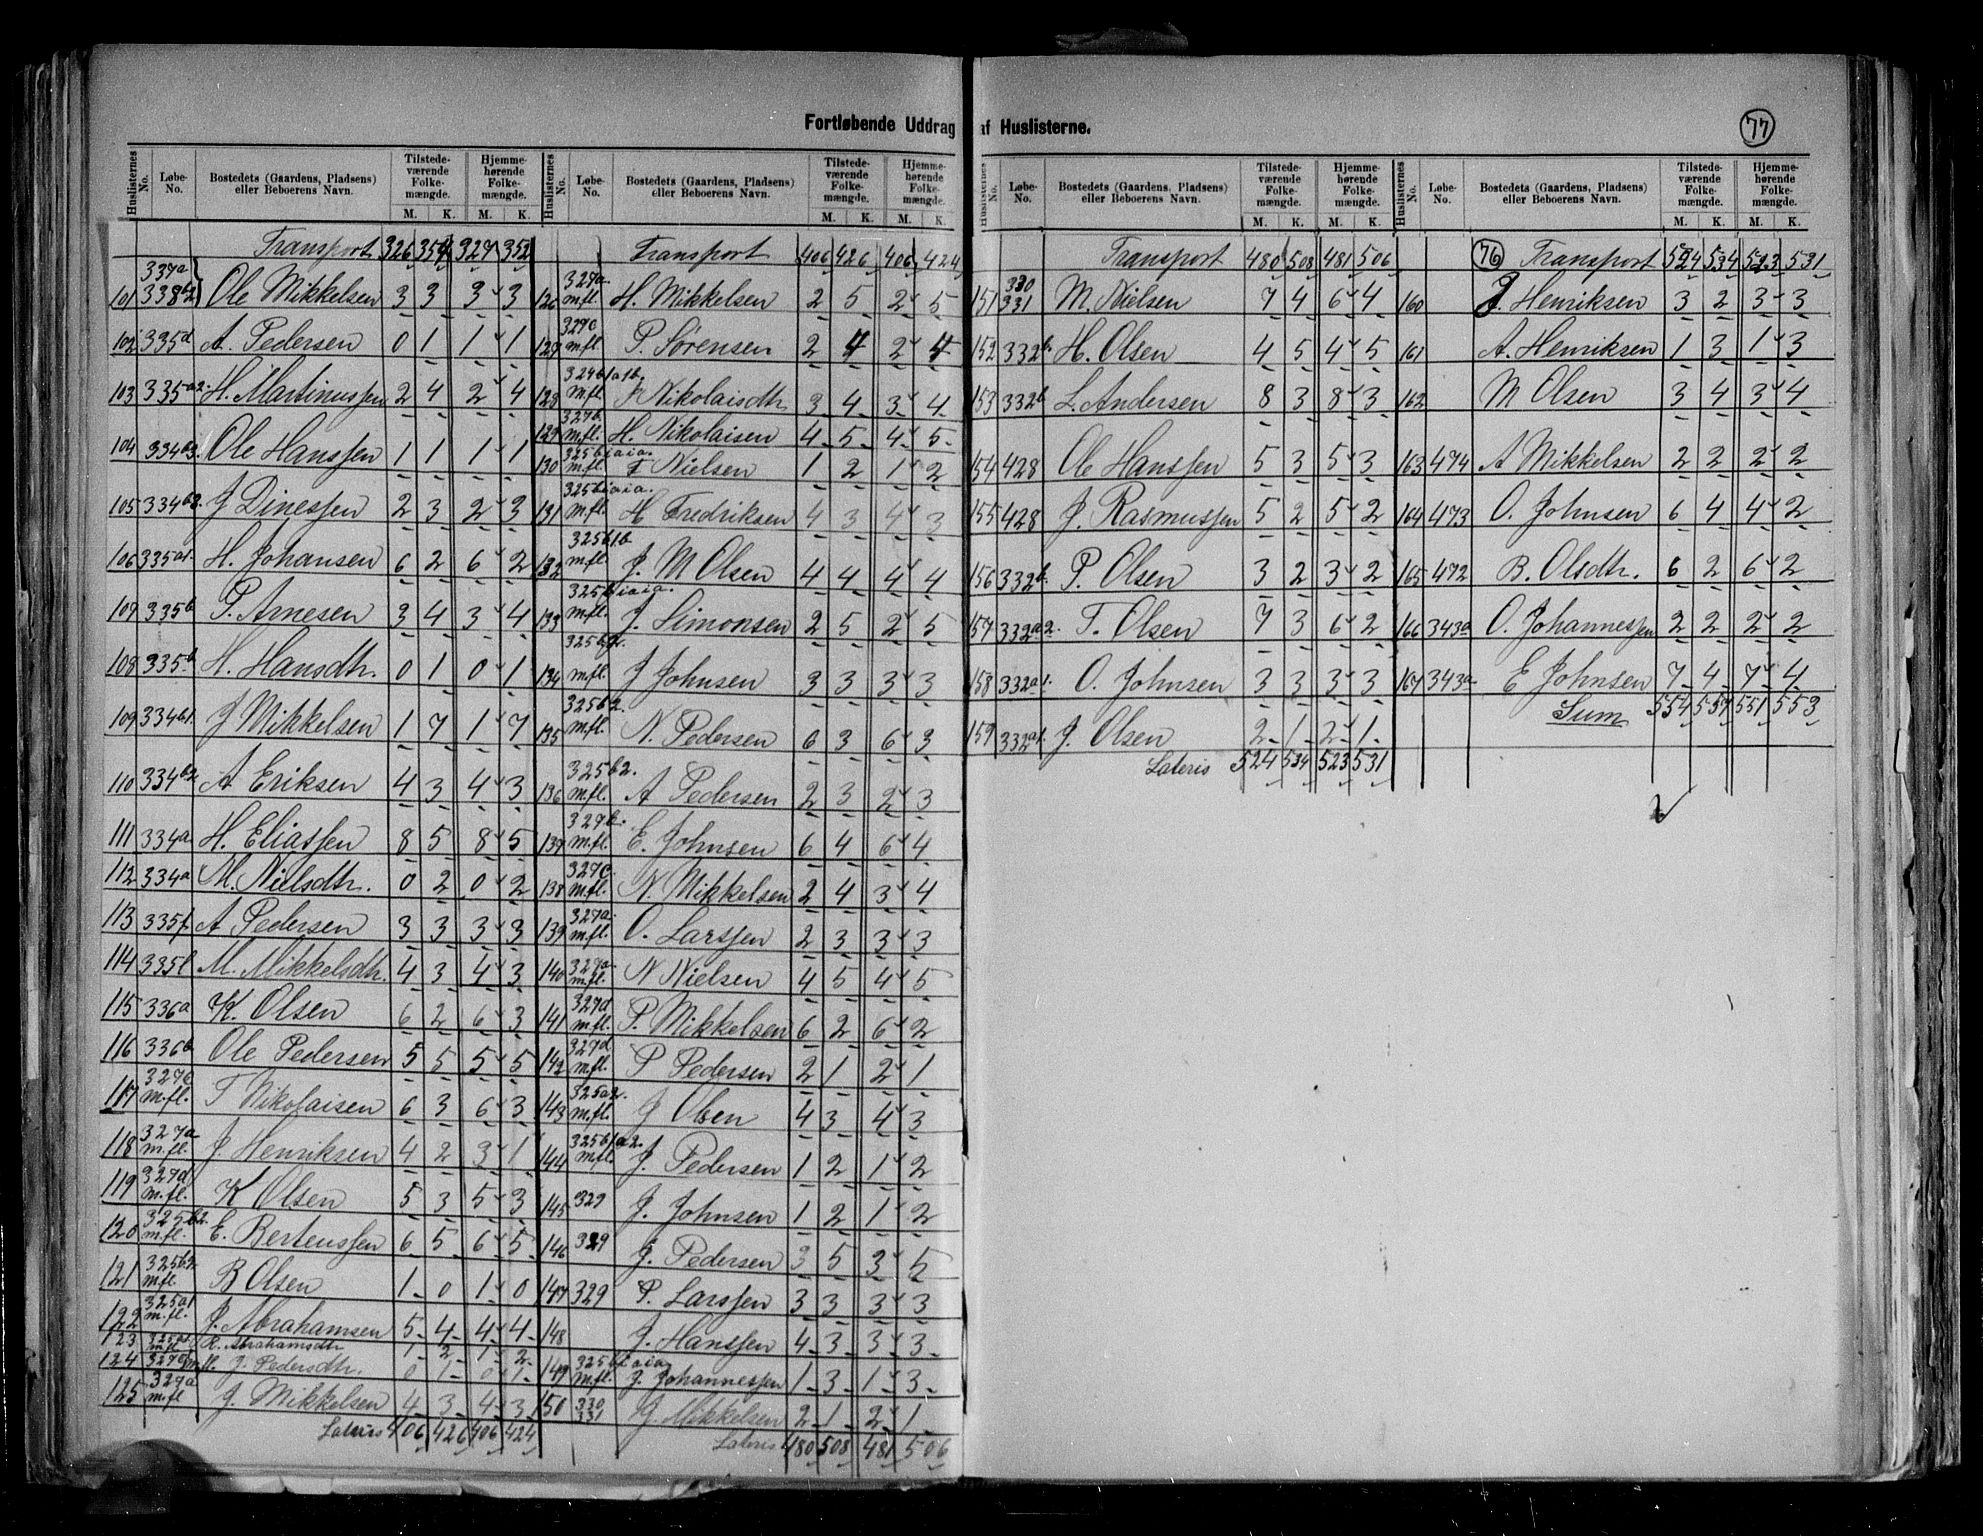 Fortløbende Uddrag af Huslisterne.
77
Huslisternes No. Løbe-No. Bostedets (Gaardens, Pladsens) eller Beboerens Navn. Tilstedeværende Folkemængde. M. K. Hjemmehørende Folkemængde. M. K.
Transport 326 354 327 352
101 337a 338b2 Ole Mikkelsen 3 3 3 3
102 335d A. Pedersen 0 1 1 1
103 335a2. H. Martinussen 2 4 2 4
104 334a3. Ole Hanssen 1 1 1 1
105 334b2. J Dinessen 2 3 2 3
106 335a1. H. Johansen 6 2 6 2
107 335b P. Arnesen 3 4 3 4
108 335b H. Hansdtr. 0 1 0 1
109 334b1. J Mikkelsen 1 7 1 7
110 334b2 A Eriksen 4 3 4 3
111 334a H. Eliassen 8 5 8 5
112 334a M. Nielsdtr. 0 2 0 2
113 335f A Pedersen 3 3 3 3
114 335l M. Mikkelsdtr. 4 3 4 3
115 336a K Olsen 6 2 6 3
116 336b Ole Pedersen 5 5 5 5
117 327c m.fl. T Nikolaisen 6 3 6 3
118 327a m.fl. J Henriksen 4 2 3 1
119 327d m.fl. K Olsen 5 3 5 3
120 325b2. m.fl. E. Bertenssen 6 5 6 5
121 325b2 m.fl. B Olsen 1 0 1 0
122 325a1 m.fl. J. Abrahamsen 5 4 4 4
123 325a1 m.fl K. Abrahamsdtr 1 2 1 2
124 327c m.fl. J. Pedersdtr. 0 1 0 1
125 327a m.fl J. Mikkelsen 4 3 4 3
Lateris 406 426 406 424
Huslisternes No. Løbe-No. Bostedets (Gaardens, Pladsens) eller Beboerens Navn. Tilstedeværende Folkemængde. M. K. Hjemmehørende Folkemængde. M. K.
Transport 406 426 406 424
126 327a. m.fl. H. Mikkelsen 2 5 2 5
127 327c m.fl. P. Sørensen 2 4 2 4
128 324b1a1b. m.fl J Nikolaisdtr 3 4 3 4
129 327b. m.fl. H. Nikolaisen 4 5 4 5
130 325b1a1a. m.fl T Nielsen 1 2 1 2
131 325b1a1a. m.fl. H Fredriksen 4 3 4 3
132 325b1b m.fl. J. M Olsen 4 4 4 4
133 325b1a1a. m.fl. J. Simonsen 2 5 2 5
134 325b2. m.fl. J Johnsen 3 3 3 3
135 325b2. m.fl. N. Pedersen 6 3 6 3
136 325b2. m.fl. A Pedersen 2 3 2 3
137 327b. m.fl. E. Johnsen 6 4 6 4
138 327c. m.fl. N. Mikkelsen 2 4 3 4
139 327a. m.fl. O. Larssen 2 3 3 3
140 327a. m.fl. N Nielsen 4 5 4 5
141 327d m.fl. P. Mikkelsen 6 2 6 2
142 327d m.fl. P Pedersen 2 1 2 1
143 325a2. m.fl. J Olsen 4 3 4 3
144 325b1a2. m.fl. J. Pedersen 1 2 1 2
145 329 J. Johnsen 1 2 1 2
146 329 J. Pedersen 3 5 3 5
147 329 P. Larssen 3 3 3 3
148 J. Hanssen 4 3 3 3
149 325b1a1a m.fl. J. Johannessen 1 3 1 3
150 330 331 J Mikkelsen 2 1 2 1
Lateris 480 508 481 506
Huslisternes No. Løbe-No. Bostedets (Gaardens, Pladsens) eller Beboerens Navn. Tilstedeværende Folkemængde. M. K. Hjemmehørende Folkemængde. M. K.
Transport 480 508 481 506
151 330 331 M. Nielsen 7 4 6 4
152 332b. H. Olsen 4 5 4 5
153 332b L. Andersen 8 3 8 3
154 428 Ole Hanssen 5 3 5 3
155 428 J. Rasmussen 5 2 5 2
156 332b. P. Olsen 3 2 3 2
157 332a2. T. Olsen 7 3 6 2
158 332a1. O. Johnsen 3 3 3 3
159 332a1. J. Olsen 2 1 2 1
Lateris 524 534 523 531
Huslisternes No. Løbe-No. Bostedets (Gaardens, Pladsens) eller Beboerens Navn. Tilstedeværende Folkemængde. M. K. Hjemmehørende Folkemængde. M. K.
76 Transport 524 534 523 531
160 J. Henriksen 3 2 3 3
161 A. Henriksen 1 3 1 3
162 M Olsen 3 4 3 4
163 474 A Mikkelsen 2 2 2 2
164 473 O. Johnsen 6 4 4 2
165 472 B. Olsdtr. 6 2 6 2
166 343a O. Johannessen 2 2 2 2
167 343a E Johnsen 7 4 7 4
Sum 554 557 551 553